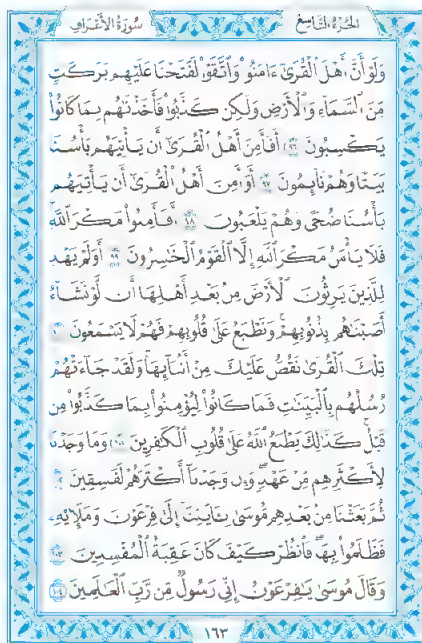 سُورَةُ الأَعْرَافِ الجُزْءُ التَّاسِعُ
وَلَوْ أَنَّ أَهْلَ الْقُرَىٰ ءَامَنُوا۟ وَاتَّقَوْا۟ لَفَتَحْنَا عَلَيْهِم بَرَكَٰتٍ
مِّنَ السَّمَآءِ وَالْأَرْضِ وَلَٰكِن كَذَّبُوا۟ فَأَخَذْنَٰهُم بِمَا كَانُوا۟
يَكْسِبُونَ ٩٦ أَفَأَمِنَ أَهْلُ الْقُرَىٰٓ أَن يَأْتِيَهُم بَأْسُنَا
بَيَٰتًا وَهُمْ نَآئِمُونَ ٩٧ أَوَأَمِنَ أَهْلُ الْقُرَىٰٓ أَن يَأْتِيَهُم
بَأْسُنَا ضُحًى وَهُمْ يَلْعَبُونَ ٩٨ أَفَأَمِنُوا۟ مَكْرَ اللَّهِ
فَلَا يَأْمَنُ مَكْرَ اللَّهِ إِلَّا الْقَوْمُ الْخَٰسِرُونَ ٩٩ أَوَلَمْ يَهْدِ
لِلَّذِينَ يَرِثُونَ الْأَرْضَ مِنۢ بَعْدِ أَهْلِهَآ أَن لَّوْ نَشَآءُ
أَصَبْنَٰهُم بِذُنُوبِهِمْ وَنَطْبَعُ عَلَىٰ قُلُوبِهِمْ فَهُمْ لَا يَسْمَعُونَ ١٠٠
تِلْكَ الْقُرَىٰ نَقُصُّ عَلَيْكَ مِنْ أَنۢبَآئِهَا وَلَقَدْ جَآءَتْهُمْ
رُسُلُهُم بِالْبَيِّنَٰتِ فَمَا كَانُوا۟ لِيُؤْمِنُوا۟ بِمَا كَذَّبُوا۟ مِن
قَبْلُ كَذَٰلِكَ يَطْبَعُ اللَّهُ عَلَىٰ قُلُوبِ الْكَٰفِرِينَ ١٠١ وَمَا وَجَدْنَا
لِأَكْثَرِهِم مِّنْ عَهْدٍ وَإِن وَجَدْنَآ أَكْثَرَهُمْ لَفَٰسِقِينَ ١٠٢
ثُمَّ بَعَثْنَا مِنۢ بَعْدِهِم مُّوسَىٰ بِـَٔايَٰتِنَآ إِلَىٰ فِرْعَوْنَ وَمَلَإِي۟هِۦ
فَظَلَمُوا۟ بِهَا فَانظُرْ كَيْفَ كَانَ عَٰقِبَةُ الْمُفْسِدِينَ ١٠٣
وَقَالَ مُوسَىٰ يَٰفِرْعَوْنُ إِنِّى رَسُولٌ مِّن رَّبِّ الْعَٰلَمِينَ ١٠٤
١٦٣